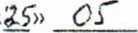 25» 05